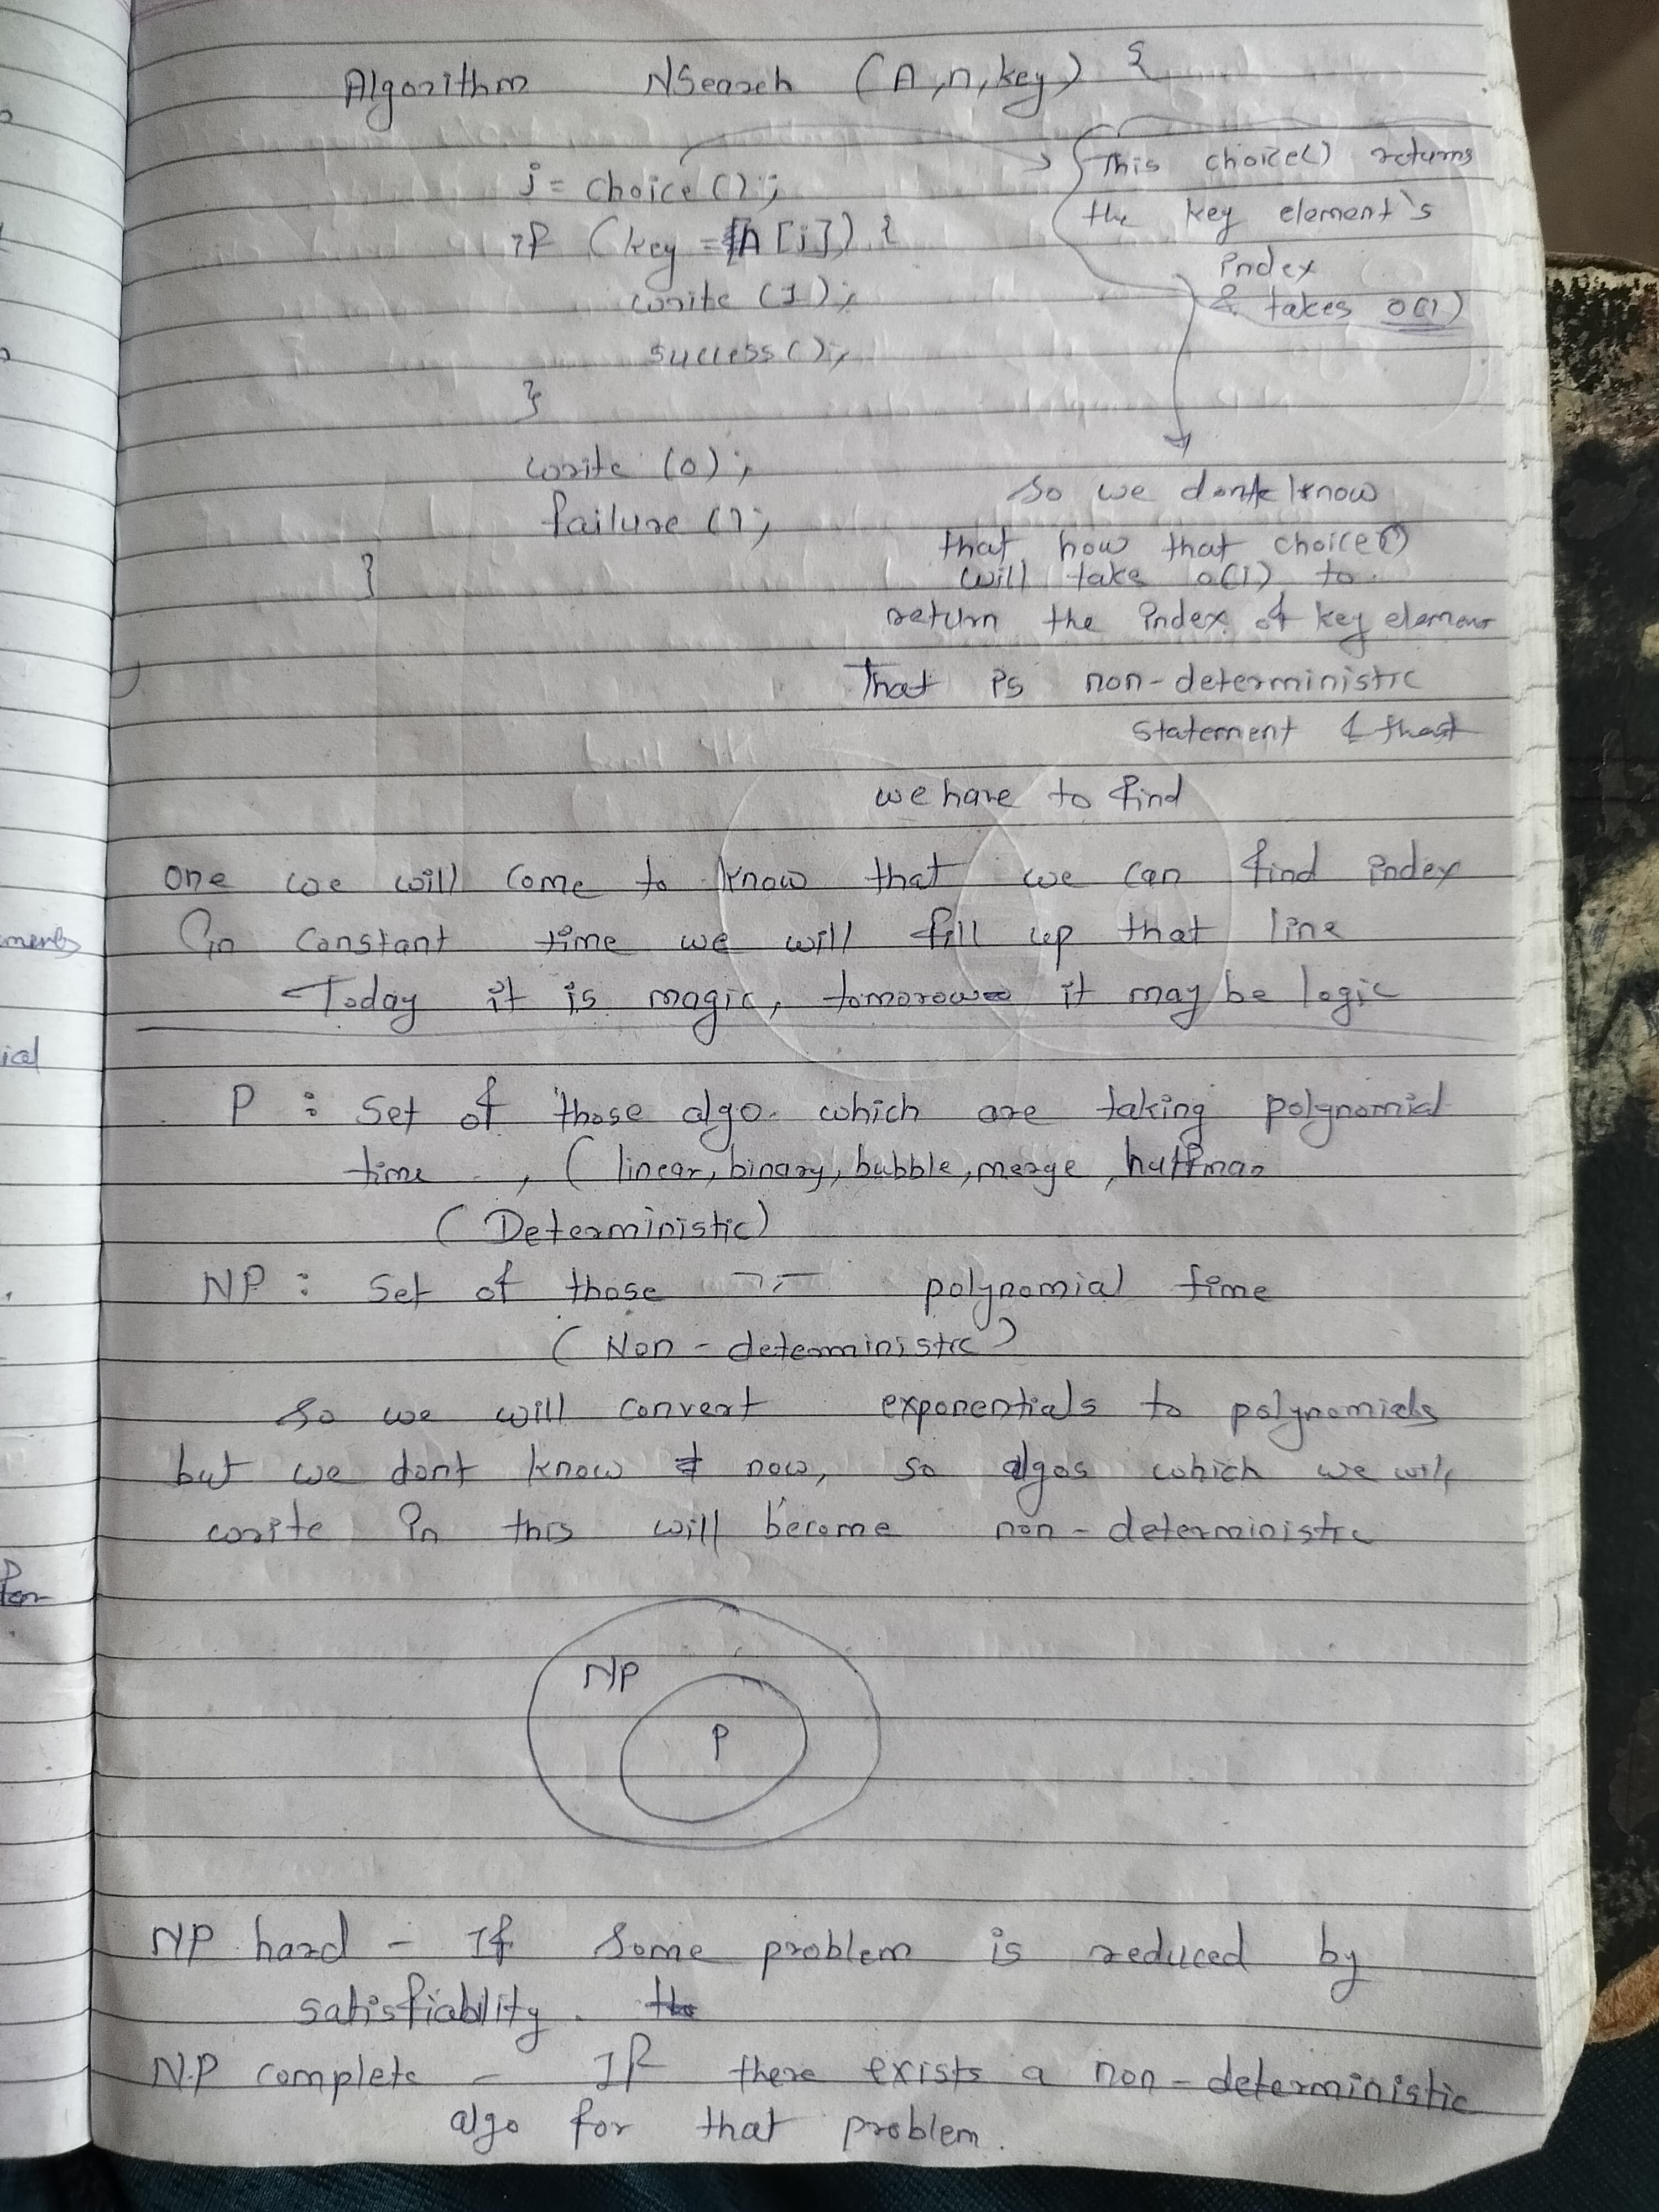 Algorithm NSearch (A,n,key) {
j = choice();
if (key = A[j]) {
write (1);
success();
}
write (0);
failure ();
}
This choice() returns
the key element's
index
& takes O(1)
So we dont know
that how that choice()
will take O(1) to
return the index of key element
That is non-deterministic
statement & that
we have to find
one we will come to know that we can find index
in constant time we will fill up that line
Today it is magic, tomorow it may be logic
P : Set of those algo. which are taking polynomial
time , ( linear, binary, bubble, merge, huffman
( Deterministic)
NP : Set of those polynomial time
( Non - deterministic)
So we will convert exponentials to polynomials
but we dont know now, so algos which we will
write in this will become non - deterministic
NP
P
NP hard - If some problem is reduced by
satisfiability.
NP complete - If there exists a non - deterministic
algo for that problem.
ments
ial
for